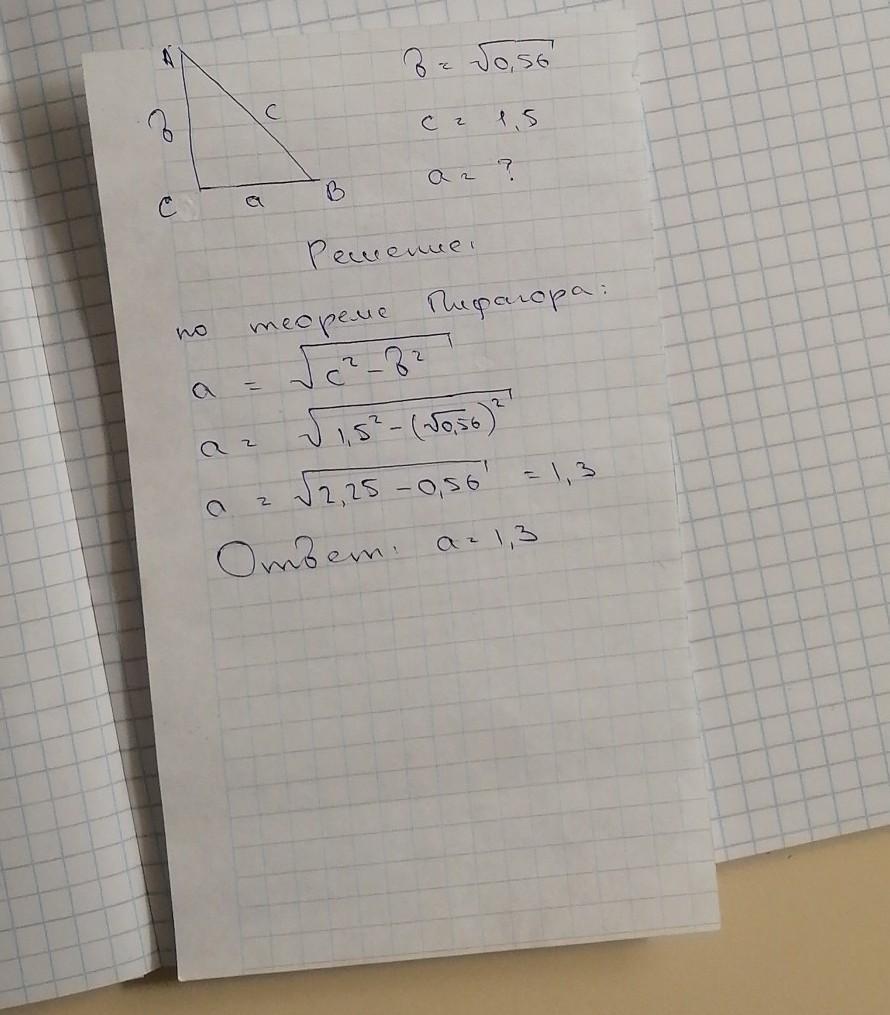 A
в
c
C
a
B
в = √0,56
c = 1,5
a = ?
Решение:
по теореме Пифагора:
a = √c² - в²
a = √1,5² - (√0,56)²
a = √2,25 - 0,56 = 1,3
Ответ: a = 1,3